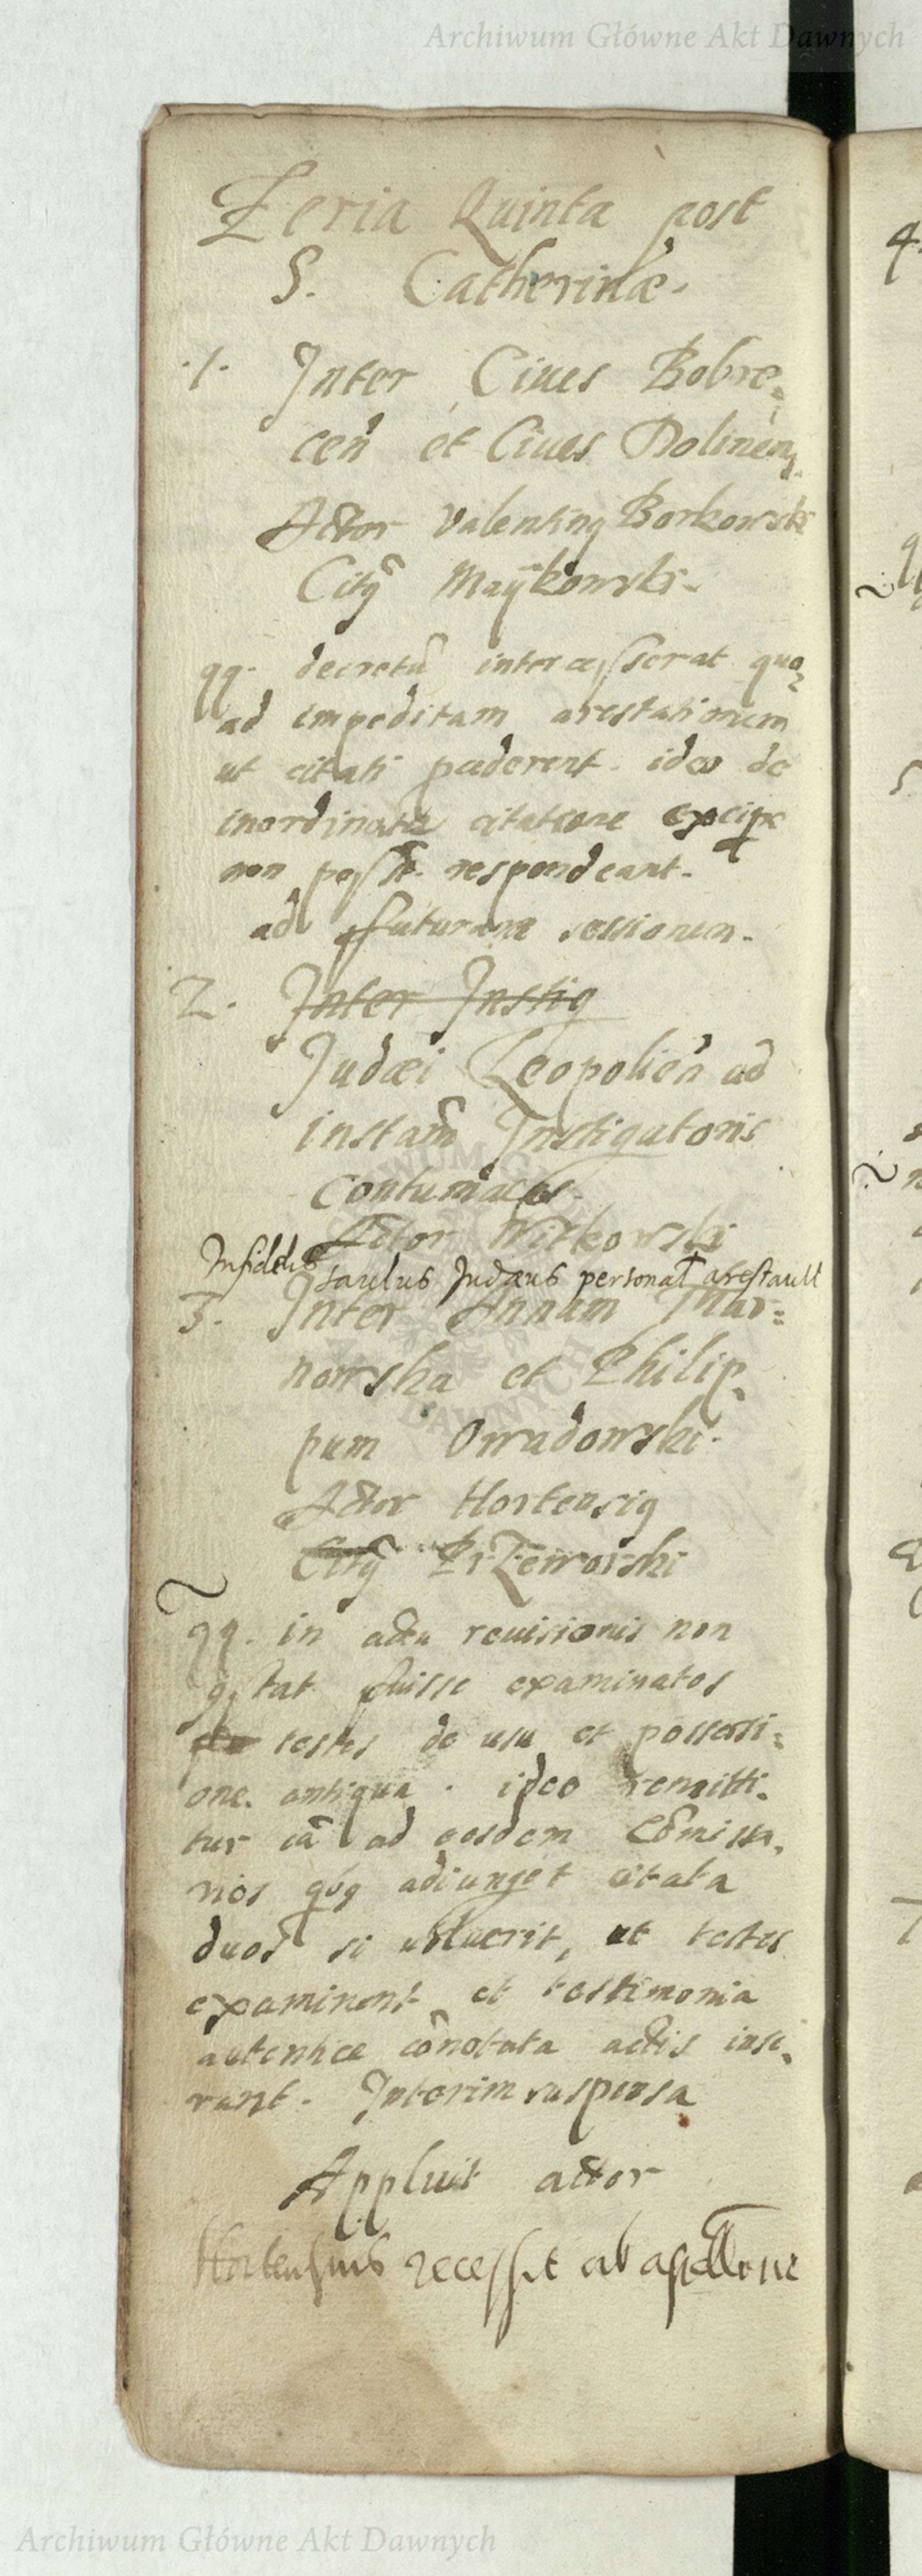 Archiwum Główne Akt Dawnych
Feria Quinta post
S. Catherinæ.
1. Inter Ciues Bobre-
cen et Ciues Dolinen
Actor Valentin9 Borkowski
Cit9 Maÿkowski.
qq. decretu intercesserat quo-
ad impeditam arestationem
ut citati
ideo de
inordinata citatione excipe
non posse. respondeant.
ad futuram sessionem.
2. Inter Instig
Judæi Leopolien ad
instam Instigatoris
Contumaces.
Actor Witkowski
Infidelis saulus Judæus personal arestauit
3. Inter Annam Thar=
nowska et Philip-
pum Owadowski.
Actor Hortensi9
Cit9 PrZeworski
qq. in actu reuisionis non
fuisse examinatos
testes de usu et possessi=
one antiqua. ideo remitti-
tur ca ad eosdem Comissa-
rios adiunget citata
duos si uoluerit, ut testes
examinent et testimonia
autentice conotata actis inse-
rant. Interim suspensa
Appluit actor
Hortensius recessit ab apellone
Archiwum Główne Akt Dawnych